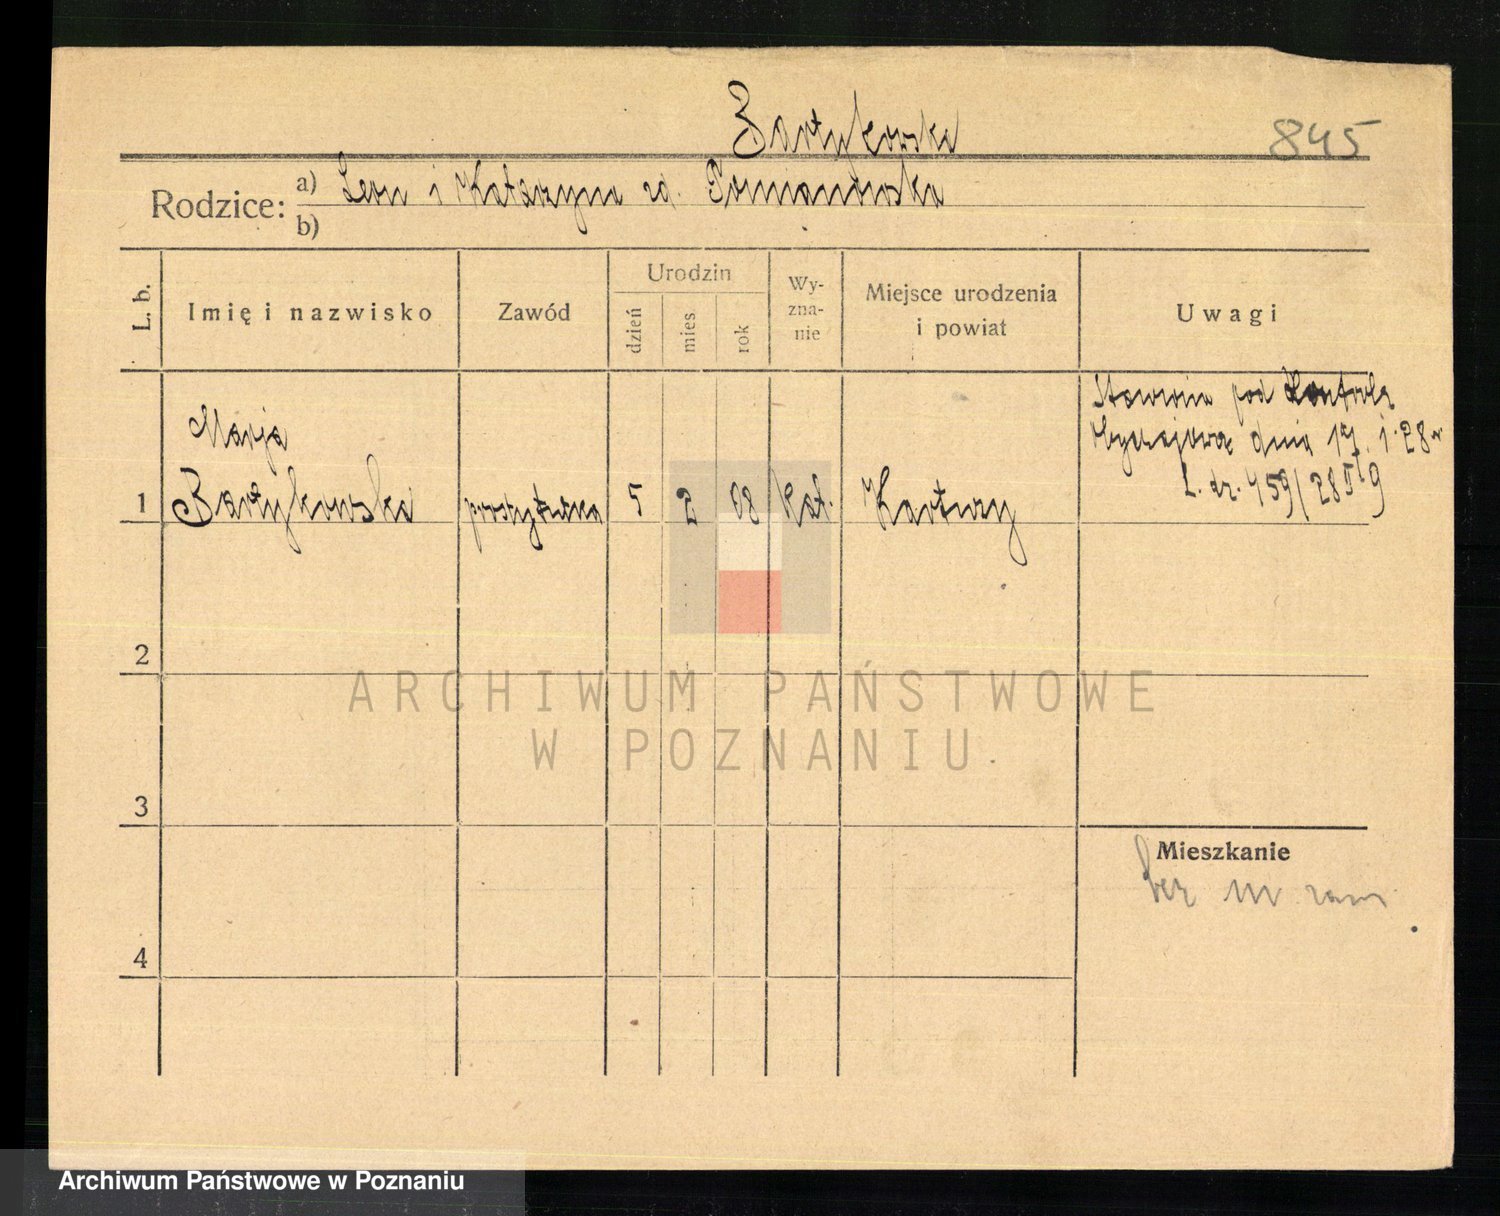 Bartykowska
845
Rodzice: a) Leon i Katarzyna zd. Pomianowska
b)
L. b.
Imię i nazwisko
Zawód
Urodzin
dzień
mies
rok
Wy-
zna-
nie
Miejsce urodzenia
i powiat
Uwagi
Marja
1 Bartykowska prostytutka 5 2 08 kat. Kartuzy
Stawiona pod Kontrolę
obyczajową dnia 17. 1. 28 r.
L. dz. 459/28
2
3
4
Mieszkanie
bez
ARCHIWUM PAŃSTWOWE
W POZNANIU
Archiwum Państwowe w Poznaniu